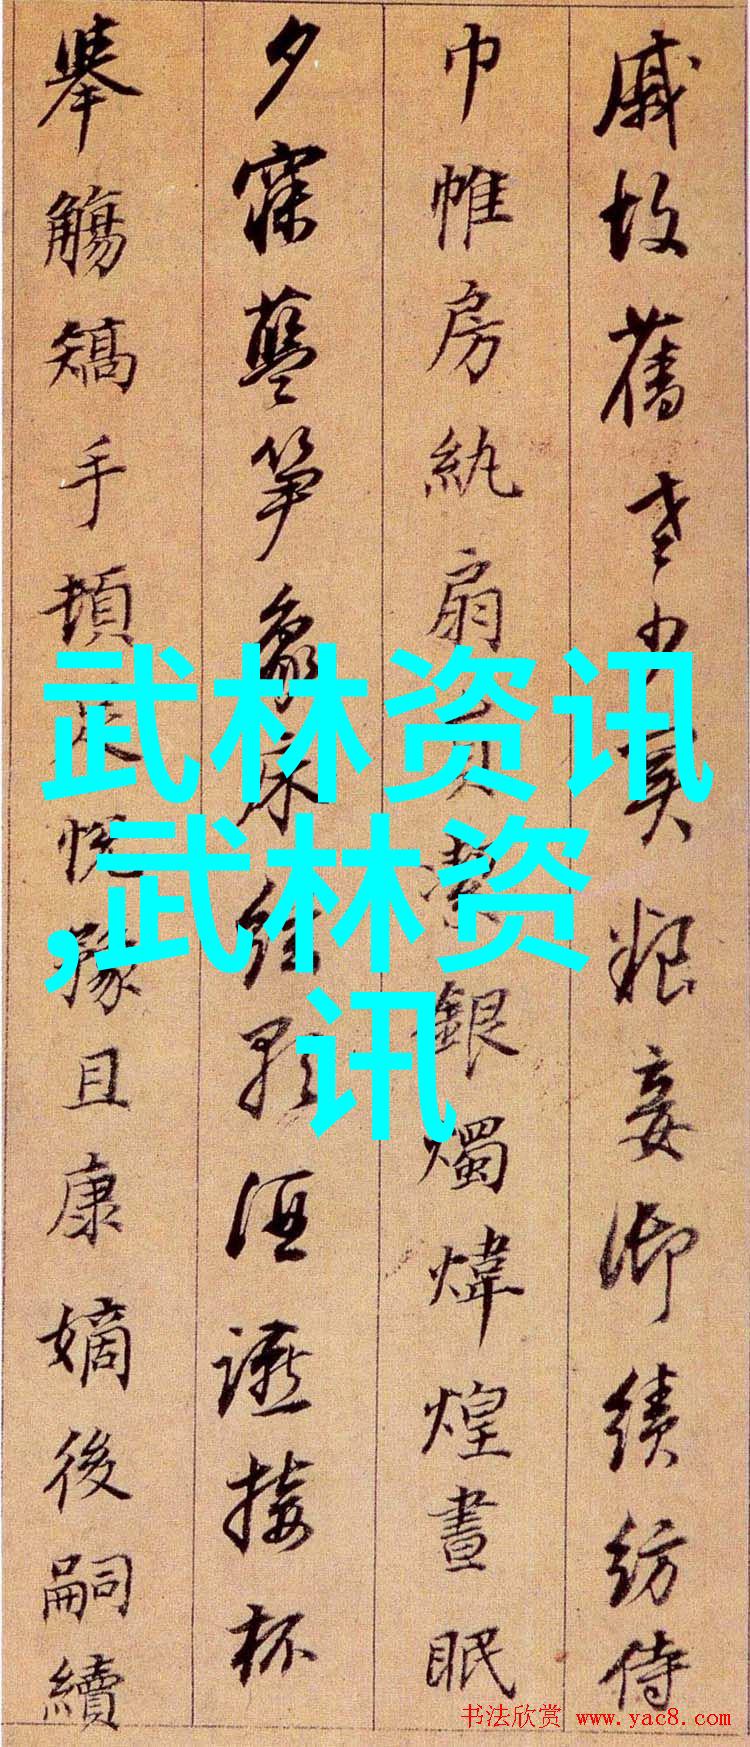 戚故舊老少異粮妾御績紡侍
巾帷房紈扇員潔銀燭煒煌晝眠
夕寐藍笋象床絃歌酒讌接杯
舉觴矯手頓足悅豫且康嫡後嗣續
武林资讯
,武林资
讯
书法欣赏 www.yac8.com